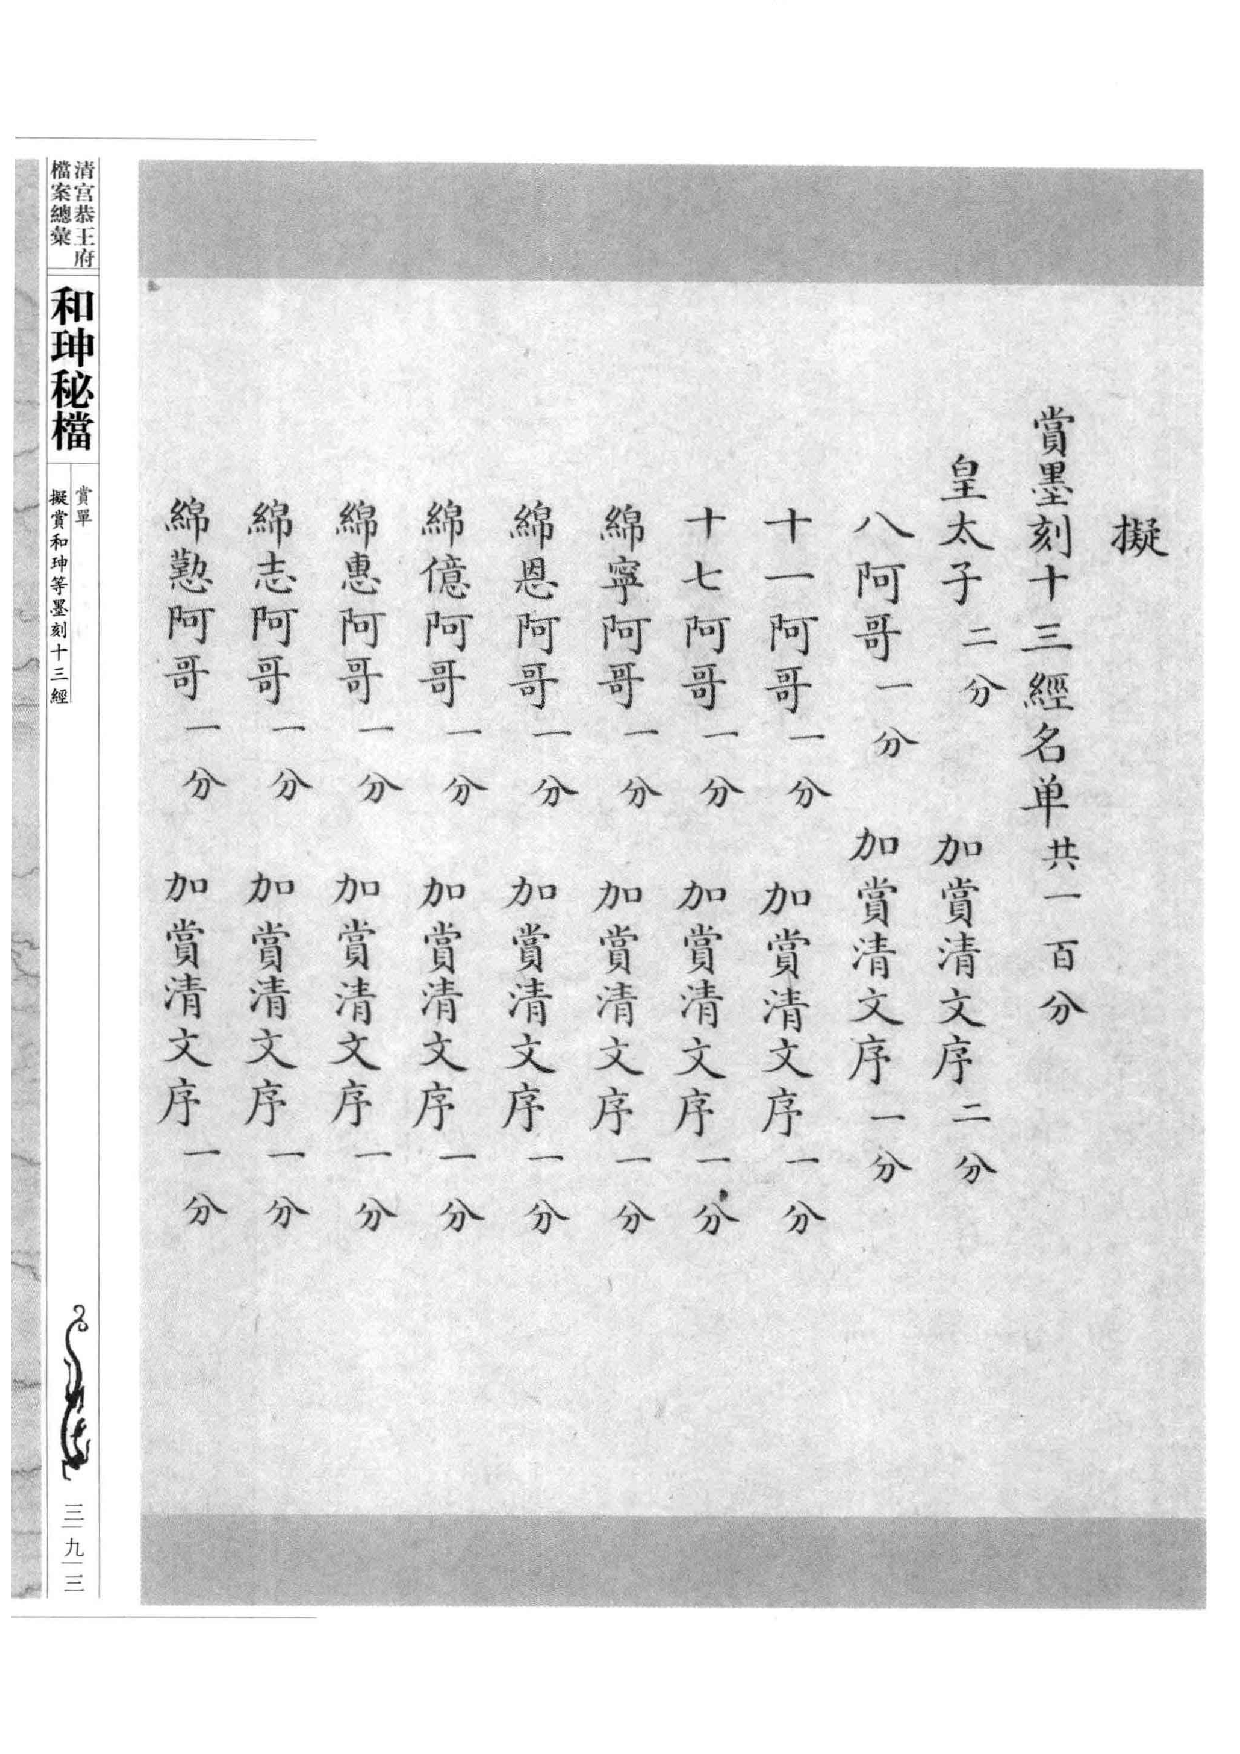 擬
賞墨刻十三經名单共一百分
皇太子二分 加賞清文序二分
八阿哥一分 加賞清文序一分
十一阿哥一分 加賞清文序一分
十七阿哥一分 加賞清文序一分
綿寧阿哥一分 加賞清文序一分
綿恩阿哥一分 加賞清文序一分
綿億阿哥一分 加賞清文序一分
綿惠阿哥一分 加賞清文序一分
綿志阿哥一分 加賞清文序一分
綿懃阿哥一分 加賞清文序一分
清宮恭王府
檔案總彙
和珅秘檔
賞單
擬賞和珅等墨刻十三經
三九三